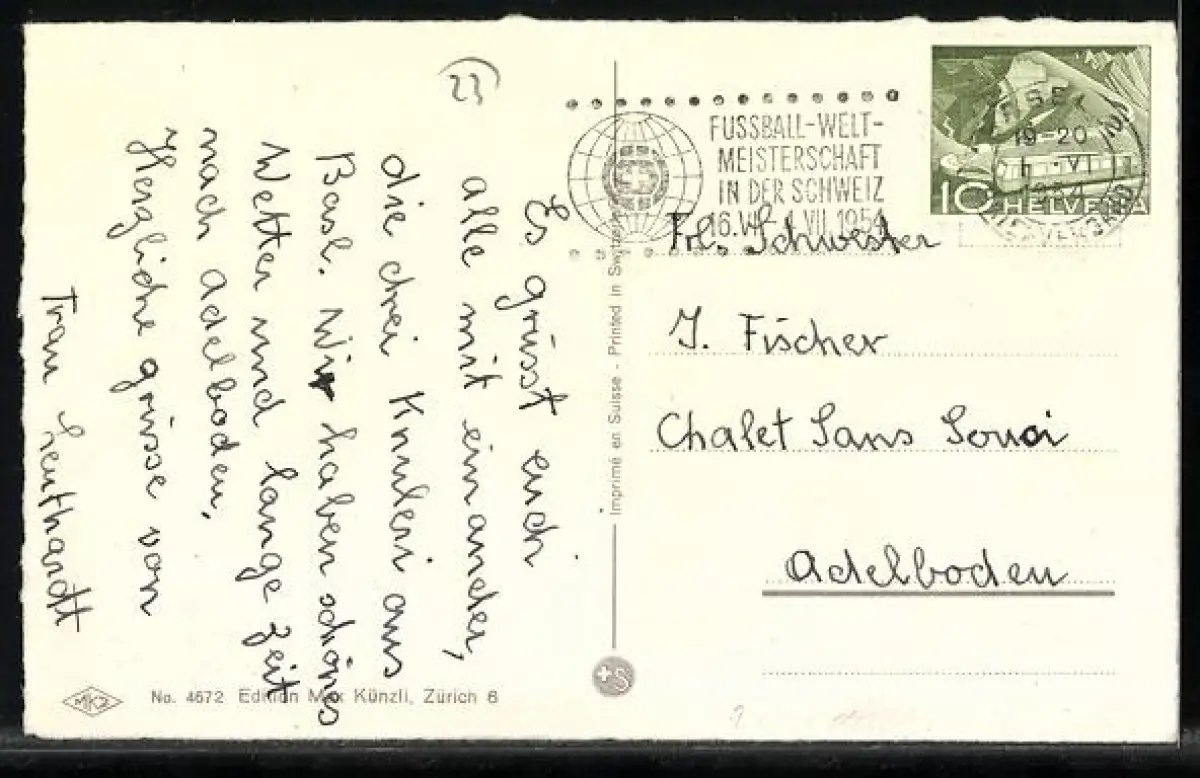 23
Es grüsst euch
alle mit einander,
die drei Knuleri aus
Basl. Wir haben schönes
Wetter und lange Zeit
nach Adelboden.
Herzliche grüsse von
Frau Leuthardt
FUSSBALL-WELT-
MEISTERSCHAFT
IN DER SCHWEIZ
16.VI.-4.VII.1954
19-20
1954
10 HELVETIA
Frl. Schwester
J. Fischer
Chalet Sans Souci
Adelboden
Imprimé en Suisse - Printed in Switzerland
+S
MKZ
No. 4672 Edition Max Künzli, Zürich 6